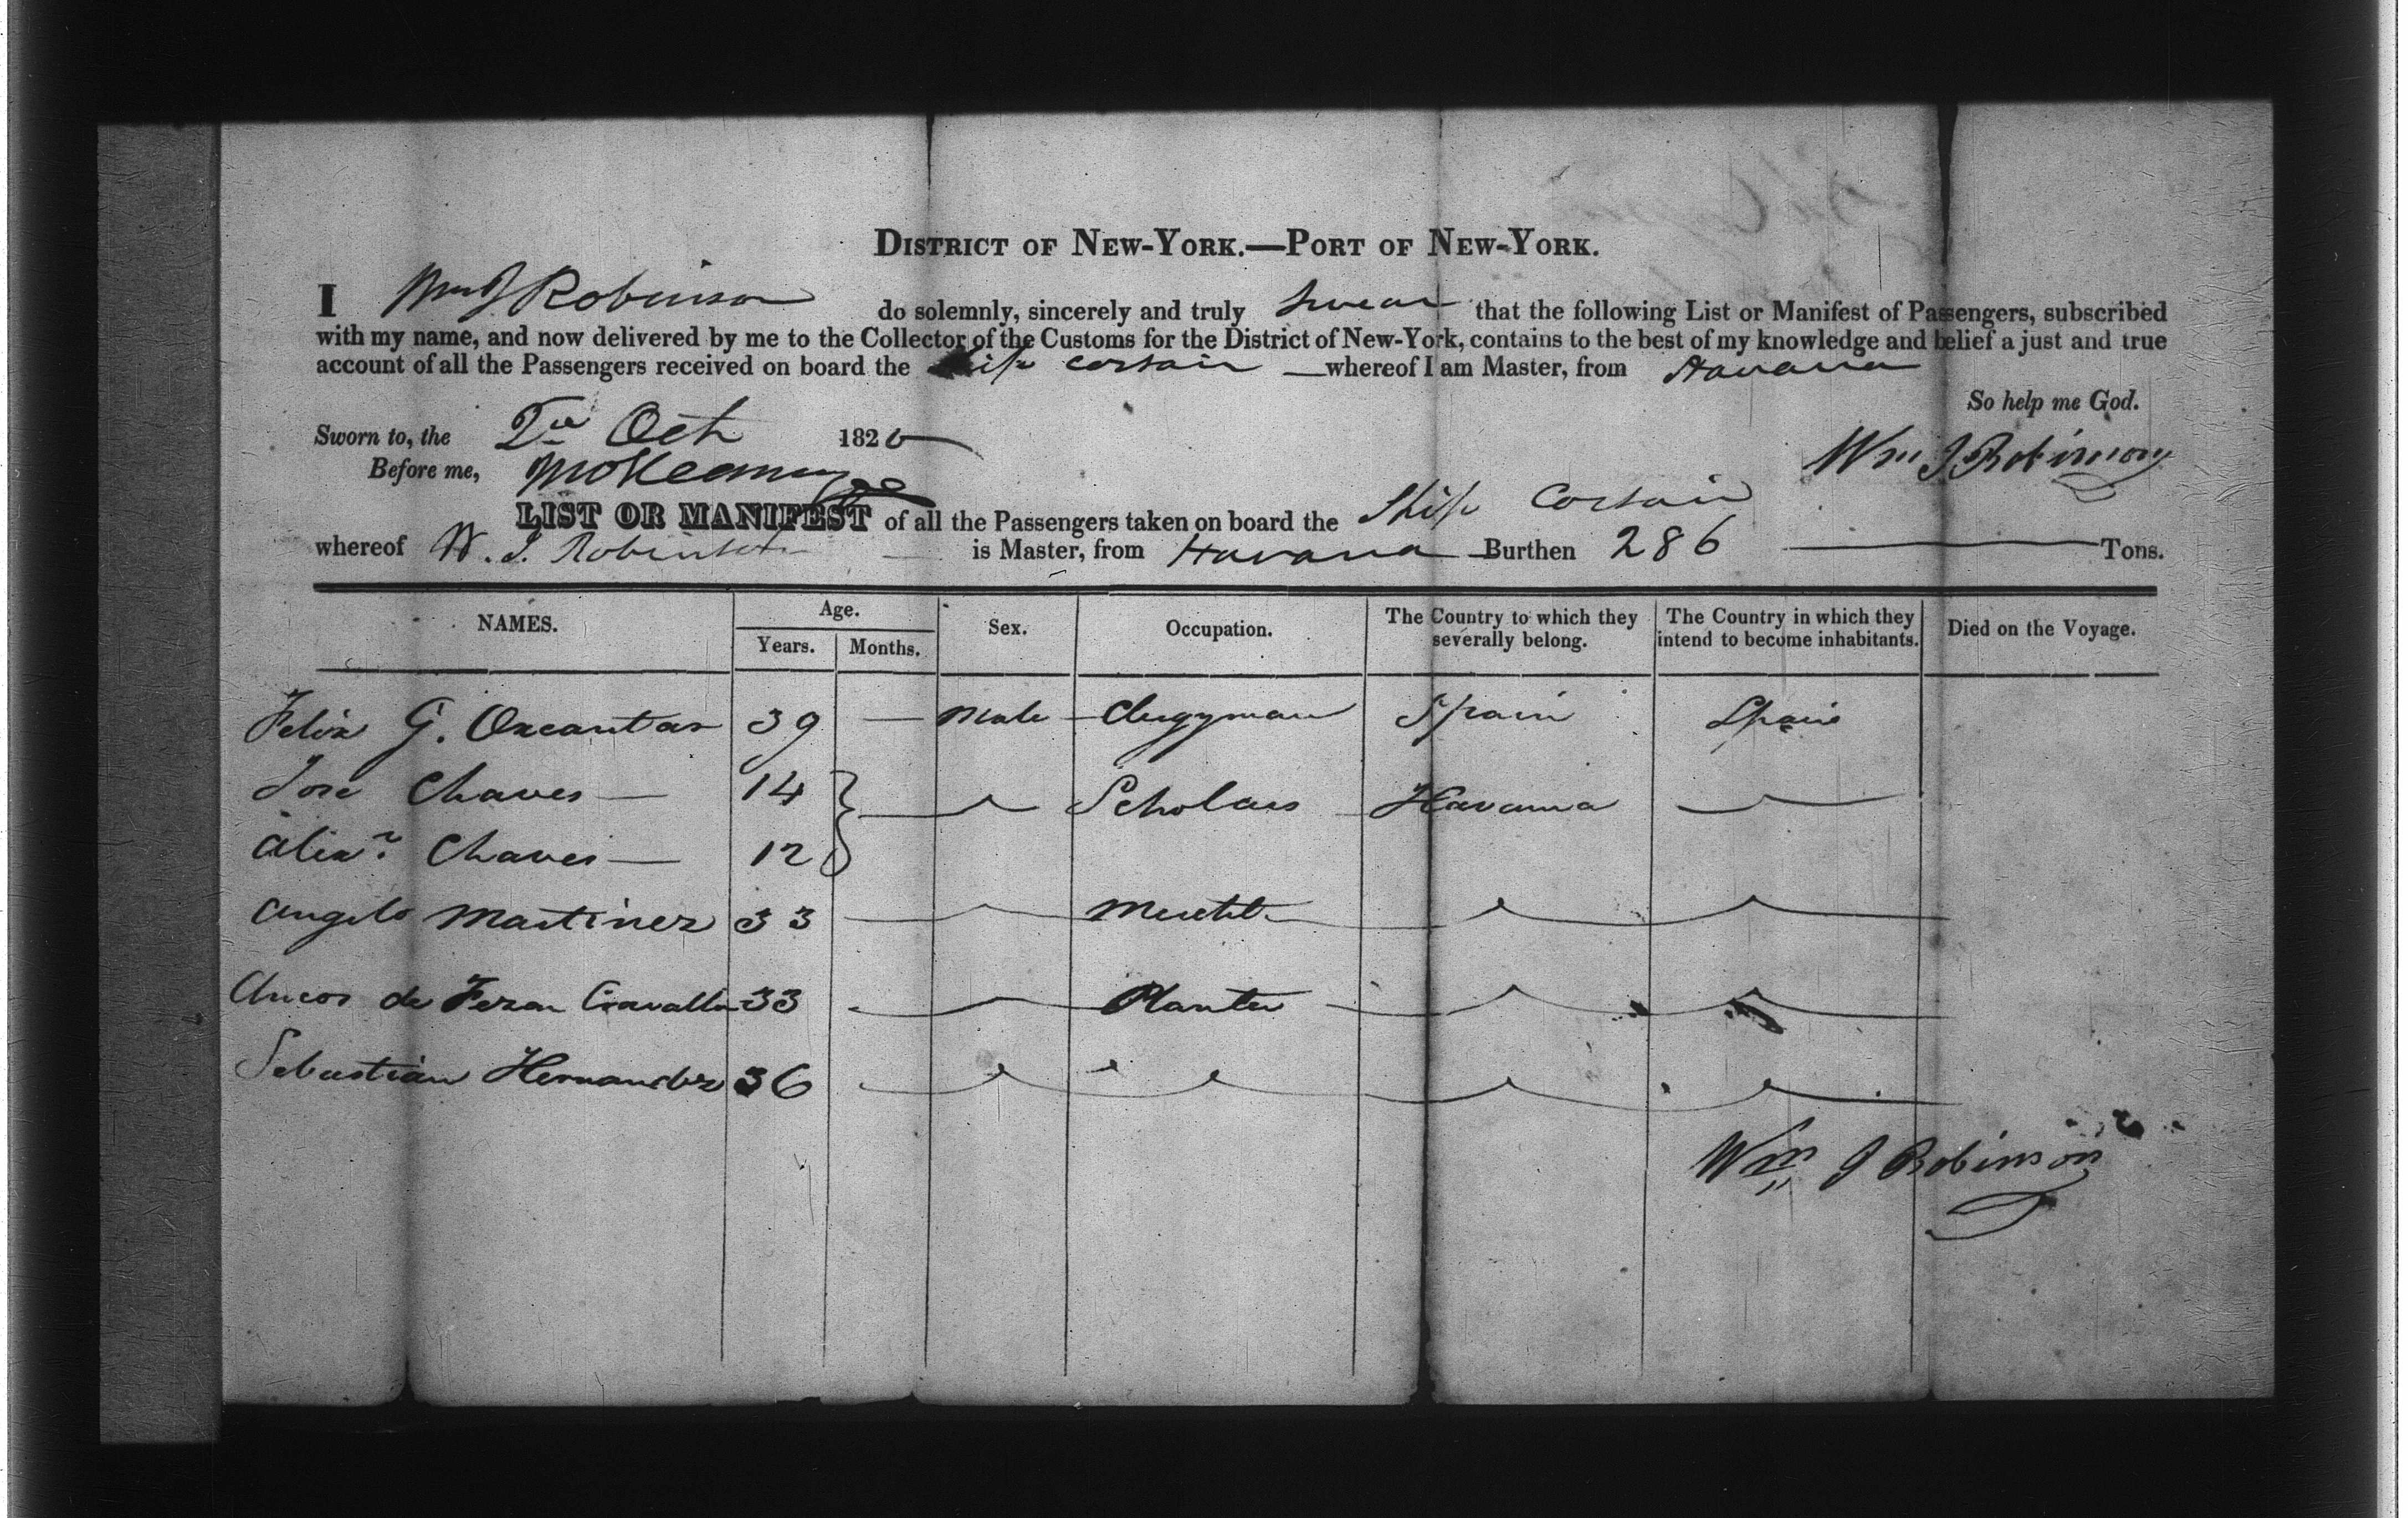 DISTRICT OF NEW-YORK.—PORT OF NEW-YORK.
I Wm J Robinson do solemnly, sincerely and truly swear that the following List or Manifest of Passengers, subscribed
with my name, and now delivered by me to the Collector of the Customs for the District of New-York, contains to the best of my knowledge and belief a just and true
account of all the Passengers received on board the ship Corsair whereof I am Master, from Havana
So help me God.
Sworn to, the Oct 1826
Wm J Robinson
Before me,
LIST OR MANIFEST of all the Passengers taken on board the Ship Corsair
whereof W. J. Robinson is Master, from Havana Burthen 286 Tons.
NAMES. Age. Years. Months. Sex. Occupation. The Country to which they severally belong. The Country in which they intend to become inhabitants. Died on the Voyage.
Felix G. 39 — Male — Clergyman Spain Spain
Jose Chaves — 14 Scholars Havanna
Alexr. Chaves — 12
Angelo Martinez 33
de 33 Planter
Sebastian Hernandez 36
Wm J Robinson